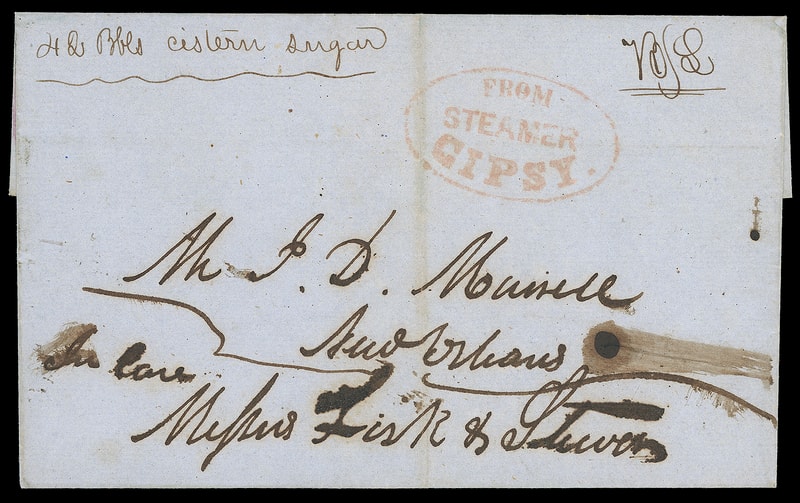 42 Bbls cistern sugar
FROM
STEAMER
GIPSY.
Mr J. D. 
New Orleans
In Care
Messrs Fisk &